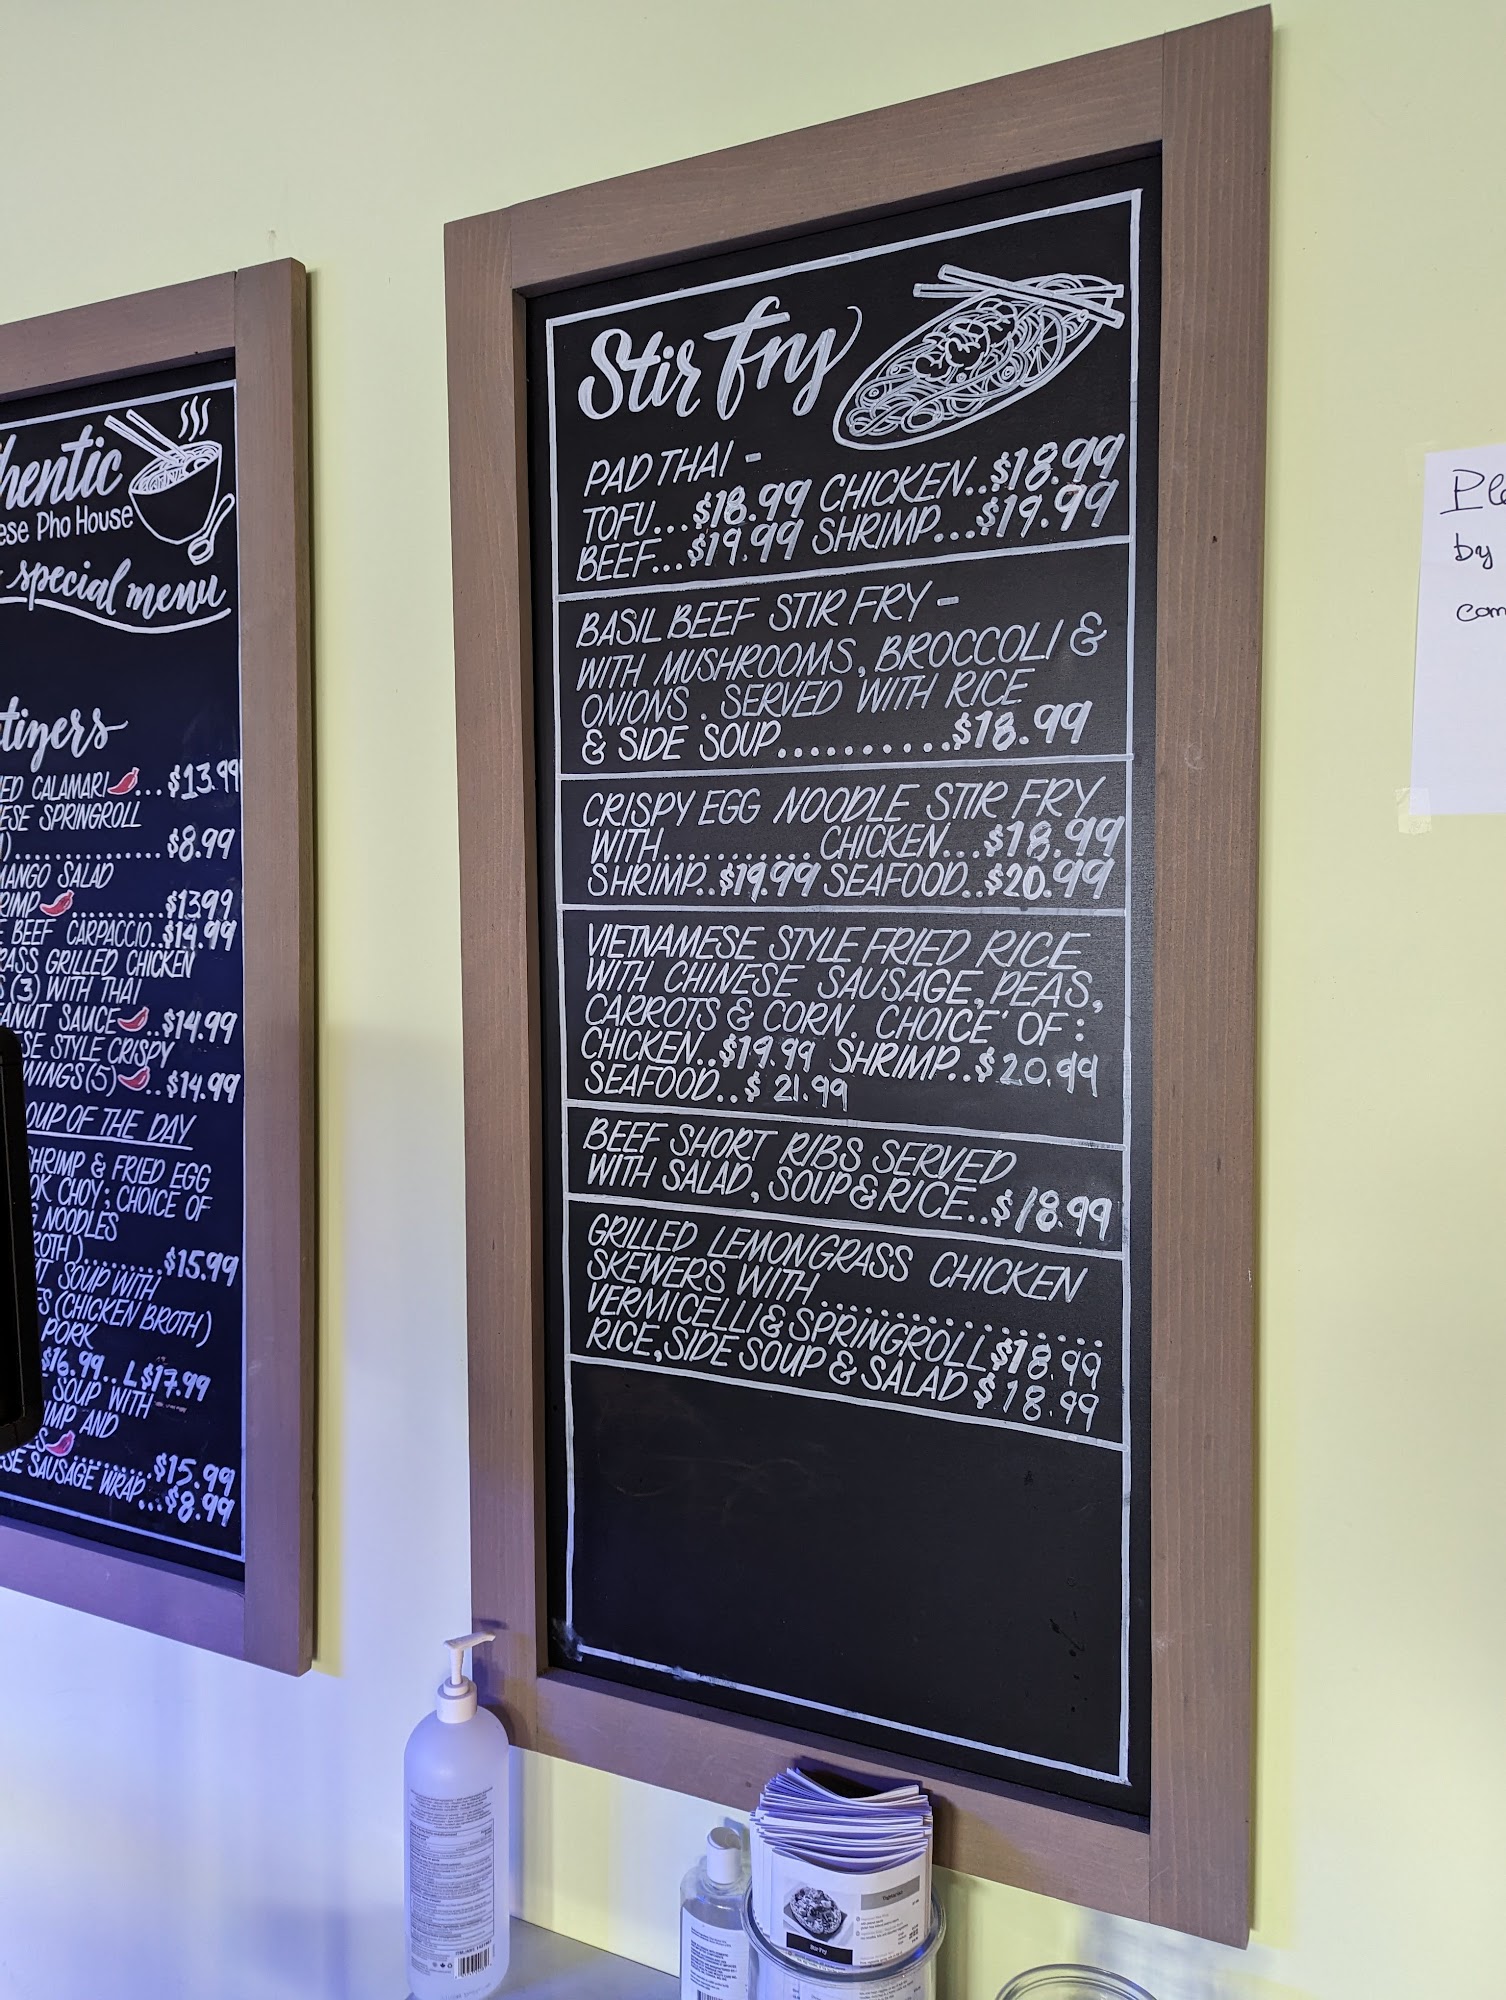 hentic
ese Pho House
special menu
tizers
ED CALAMARI...$13.99
ESE SPRINGROLL
)...............$8.99
MANGO SALAD
RIMP..........$1399
E BEEF CARPACCIO..$14.99
RASS GRILLED CHICKEN
S (3) WITH THAI
EANUT SAUCE..$14.99
SE STYLE CRISPY
WINGS(5)..$14.99
OUP OF THE DAY
HRIMP & FRIED EGG
OK CHOY; CHOICE OF
G NOODLES
ROTH)..........$15.99
T SOUP WITH
ES (CHICKEN BROTH)
PORK
$16.99.. L $17.99
SOUP WITH
IMP AND
ES.........$15.99
ESE SAUSAGE WRAP...$8.99
Stir fry
PAD THAI -
TOFU...$18.99 CHICKEN..$18.99
BEEF...$19.99 SHRIMP...$19.99
BASIL BEEF STIR FRY -
WITH MUSHROOMS, BROCCOLI &
ONIONS. SERVED WITH RICE
& SIDE SOUP..........$18.99
CRISPY EGG NOODLE STIR FRY
WITH.......... CHICKEN...$18.99
SHRIMP..$19.99 SEAFOOD..$20.99
VIETNAMESE STYLE FRIED RICE
WITH CHINESE SAUSAGE, PEAS,
CARROTS & CORN. CHOICE OF:
CHICKEN..$19.99 SHRIMP..$20.99
SEAFOOD..$21.99
BEEF SHORT RIBS SERVED
WITH SALAD, SOUP & RICE..$18.99
GRILLED LEMONGRASS CHICKEN
SKEWERS WITH..................
VERMICELLI & SPRINGROLL $18.99
RICE, SIDE SOUP & SALAD $18.99
Ple
by
com
Vegetarian
Stir Fry